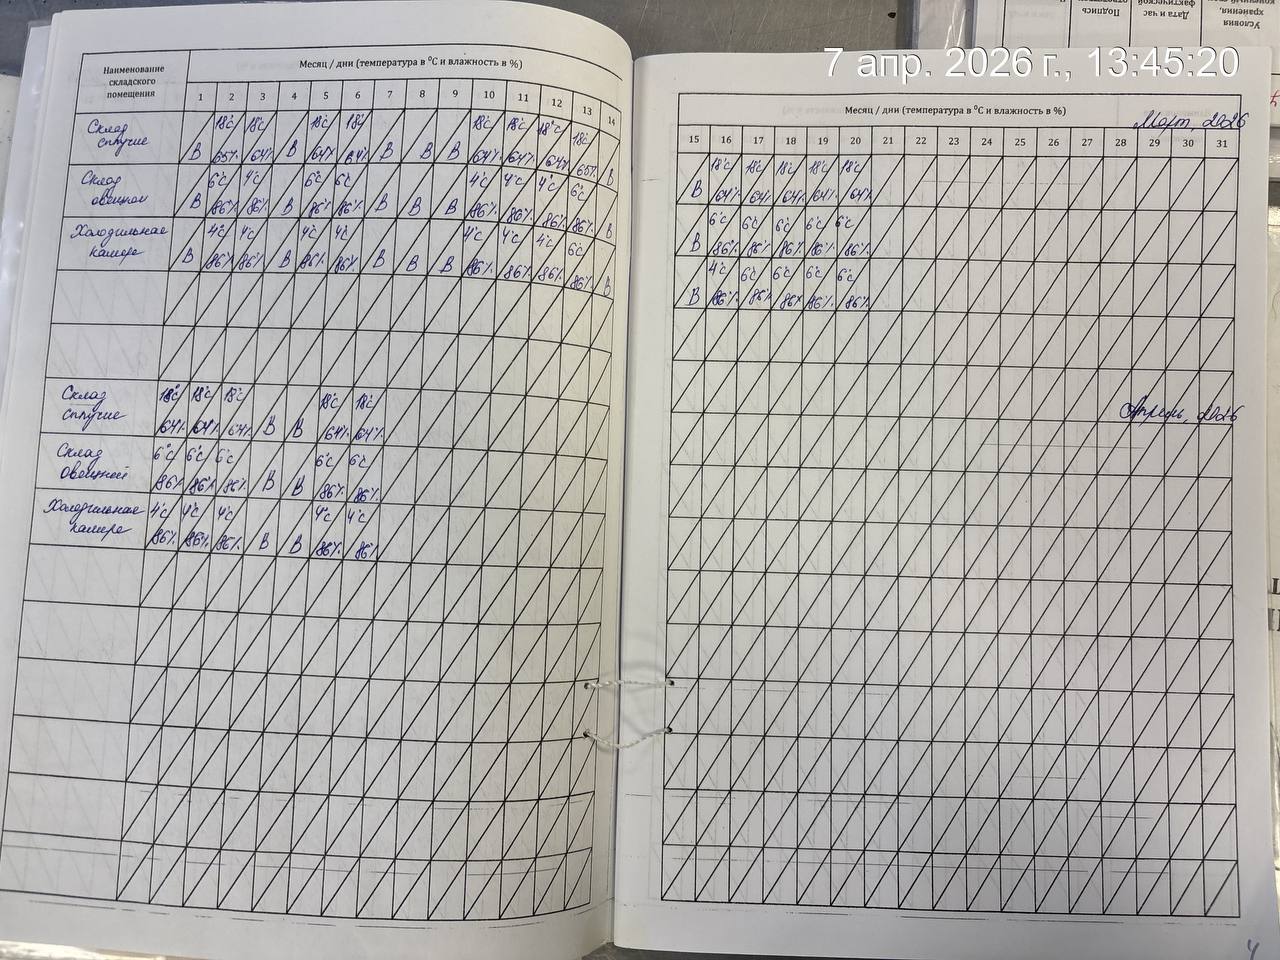 7 апр. 2026 г., 13:45:20
Условия хранения,
Дата и час фактической
Подпись
Наименование складского помещения
Месяц / дни (температура в ⁰С и влажность в %)
1 2 3 4 5 6 7 8 9 10 11 12 13 14
Склад сыпучие
В 18°С 65% 18°С 64% В 18°С 64% 18°С 64% В В В 18°С 64% 18°С 64% 18°С 64% 18°С 65% В
Склад овощной
В 6°С 86% 4°С 86% В 6°С 86% 6°С 86% В В В 4°С 86% 4°С 86% 4°С 86% 6°С 86% В
Холодильная камера
В 4°С 86% 4°С 86% В 4°С 86% 4°С 86% В В В 4°С 86% 4°С 86% 4°С 86% 6°С 86% В
Склад сыпучие
18°С 64% 18°С 64% 18°С 64% В В 18°С 64% 18°С 64%
Склад овощной
6°С 86% 6°С 86% 6°С 86% В В 6°С 86% 6°С 86%
Холодильная камера
4°С 86% 4°С 86% 4°С 86% В В 4°С 86% 4°С 86%
Месяц / дни (температура в ⁰С и влажность в %)
Март, 2026
15 16 17 18 19 20 21 22 23 24 25 26 27 28 29 30 31
В 18°С 64% 18°С 64% 18°С 64% 18°С 64% 18°С 64%
В 6°С 86% 6°С 86% 6°С 86% 6°С 86% 6°С 86%
В 4°С 86% 6°С 86% 6°С 86% 6°С 86% 6°С 86%
Апрель, 2026
4